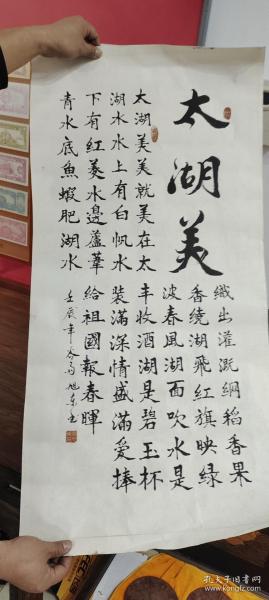 太湖美
太湖美美就美在太
湖水水上有白帆水
下有红菱水邊蘆葦
青水底魚蝦肥湖水
織出灌溉綱稻香果
香绕湖飛红旗映绿
波春風湖面吹水是
丰收酒湖是碧玉杯
装滿深情盛滿爱捧
給祖國報春暉
壬辰年 旭东书
孔夫子旧书网